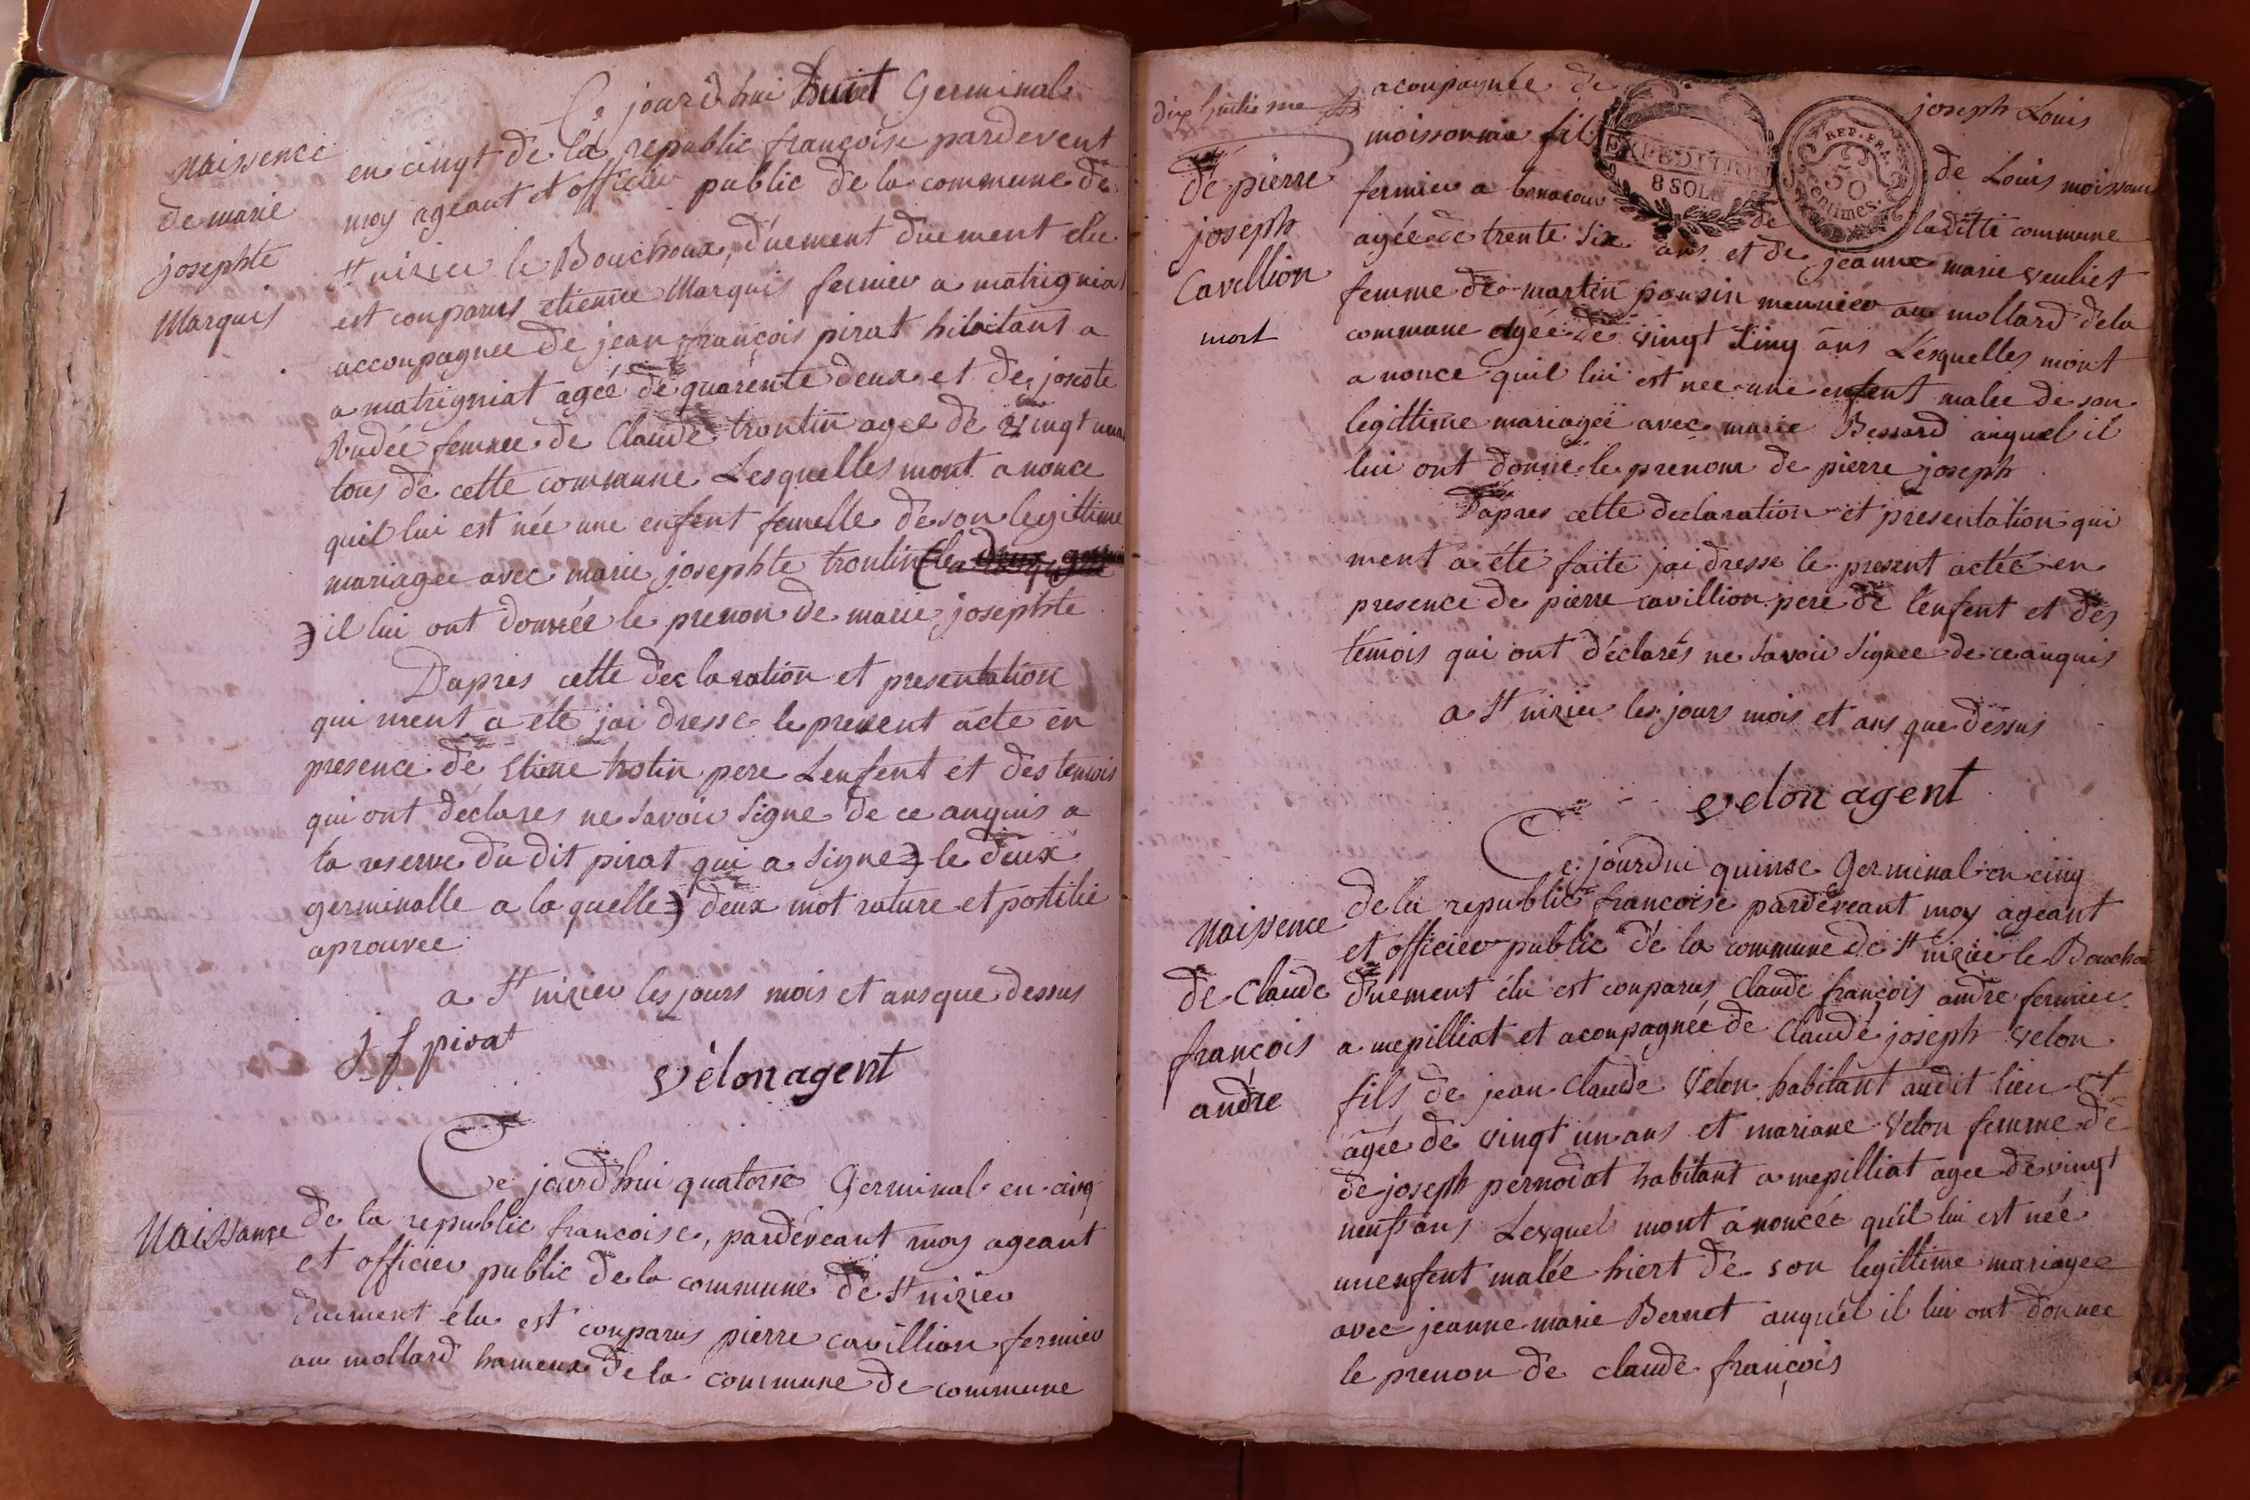 Ce jourd'hui huit Germinal
Naissence
de marie
josephte
Marquis
en cinqt de la republic françoise pardevent
moy ageant et officier public de la commune de
St nizier le Bouchoux, duement duement elu
est conparus etienne Marquis fermier a matignia
accoupagnee de jean françois pirat hibitant a
a matrigniat agée de quarente deux et de joseste
femme de Claude trontin agee de vingt
tous de cette commune Lesquelles mont a nonce
quil lui est née une enfent femelle de son legittime
mariagee avec marie josephte trontin (le deux
) il lui ont donnée le prenon de marie josephte
Dapres cette declaration et presentation
qui ment a été jai dresse le present acte en
presence de Etiene trotin pere Lenfent et des temois
qui ont déclares ne savoir signe de ce anquis a
la reserve du dit pirat qui a signe) le deux
germinalle a la quelle) deux mot rature et postilie
aprouvee
a St nizier les jours mois et ans que dessus
j f pirat
vélon agent
Ce jourd'hui quatorse Germinal en cinq
Naissance
de la republic francoise, pardeveant moy ageant
et officier public de la commune de St nizier
duement élu est conparus pierre cavillion fermier
au mollard hameux de la commune de commune
dix huitieme
de pierre
joseph
Cavillion
mort
acoupagnée de joseph Louis
moissonnia fils de Louis moissonn
fermier a de laditte commune
agée de trente six ans et de jeanne marie veuliet
femme de martin pousin meunier au mollard dela
commune agée de vingt cinq ans Lesquelles mont
a nonce quil lui est nee une enfent malee de son
legittime mariagée avec marie Bessard auquel il
lui ont donné le prenom de pierre joseph
Dapres cette declaration et presentation qui
ment a été faite jai dresse le present actée en
presence de pierre cavillion pere de lenfent et des
témois qui ont déclarés ne savoir signee de ce anquis
a St nizier les jours mois et ans que dessus
velon agent
EXPEDITION
8 SOLS
REP. FRA.
50
Centimes.
Ce jourdui quinse Germinal en cinq
Naissence
de Claude
françois
andre
dela republic francoise pardeveant moy ageant
et officier public de la commune de St nizier le Bouchou
duement élu est conparus Claude françois andre fermier
a mepilliat et acoupagnée de Claude joseph velon
fils de jean Claude Velon habitant audit lieu et
agée de vingt un ans et mariane Velon femme de
de joseph pernodat habitant a mepilliat agee de vingt
neuf ans Lesquels mont anoncée qu'il lui est née
un enfent malée hiert de son legittime mariagee
avec jeanne marie Bernet auquel il lui ont donnee
le prenon de claude françois